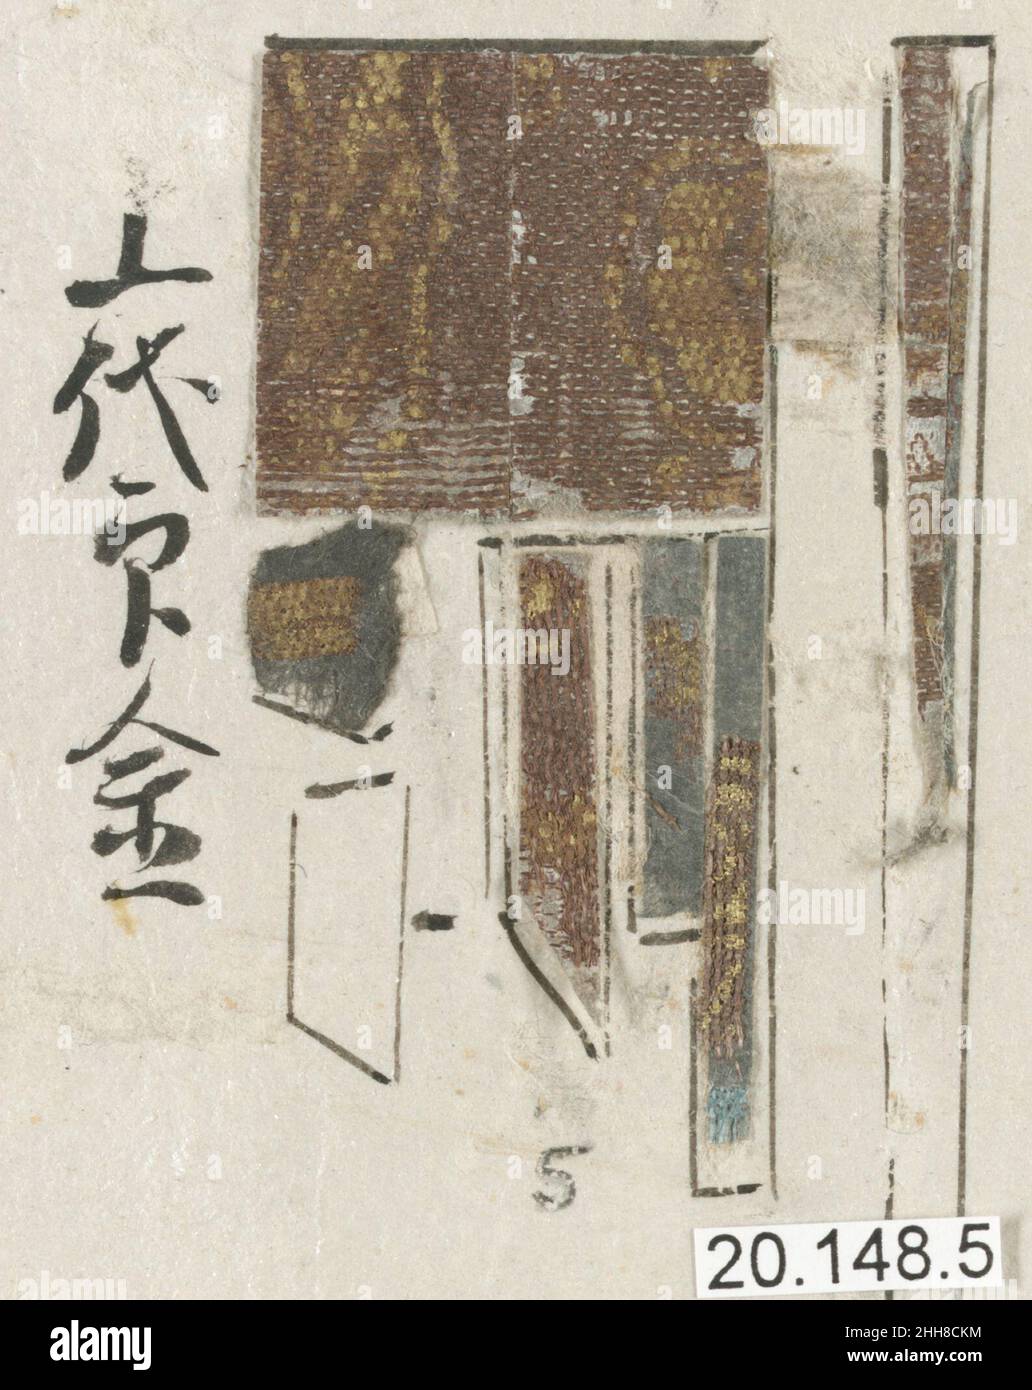 上代印金
5
20.148.5
alamy
Image ID: 2HH8CKM
www.alamy.com